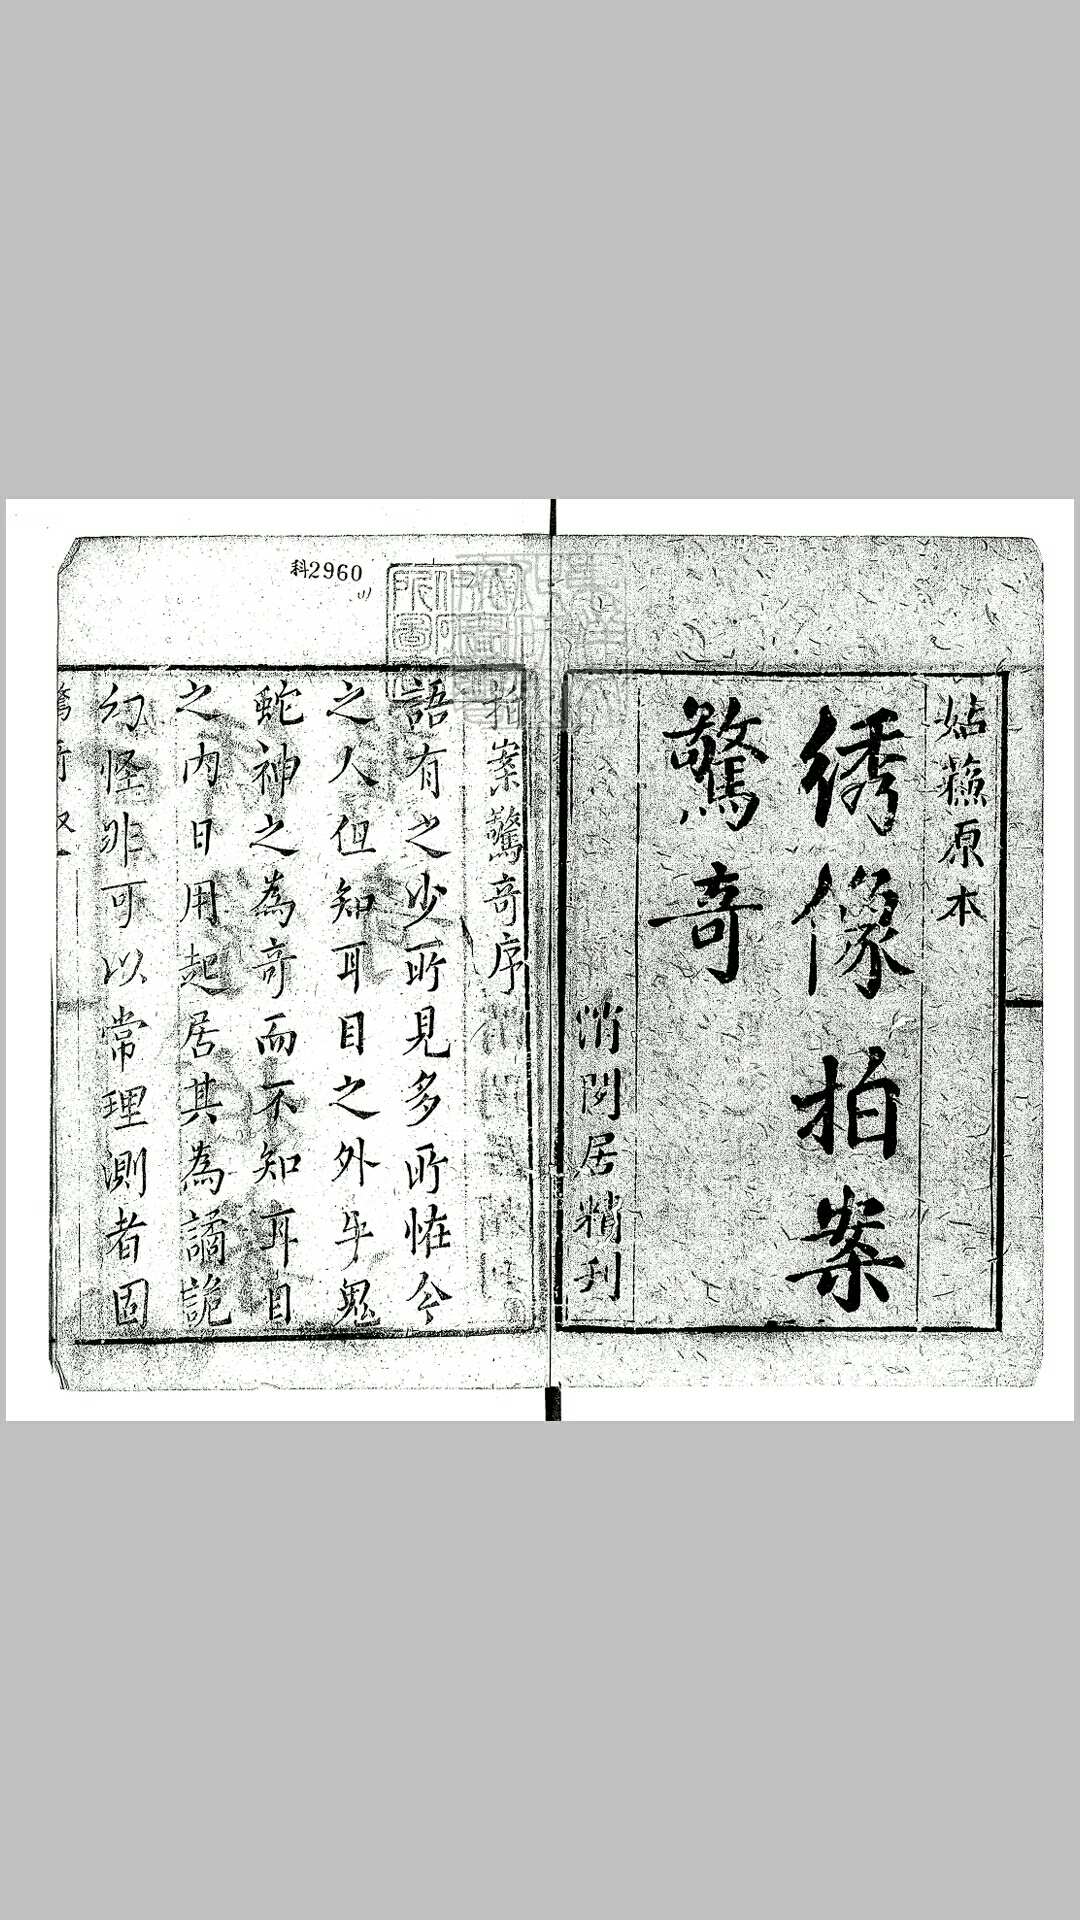 姑蘓原本
綉像拍案
驚奇
消閒居精刋
科2960
拍案驚奇序
語有之少所見多所恠今
之人但知耳目之外牛鬼
蛇神之為奇而不知耳目
之內日用起居其為譎詭
幻怪非可以常理測者固